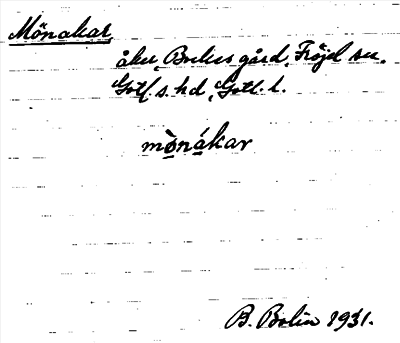 Mönakar
åker, Bockes gård, Fröjel sn.
Gotl. s. hd, Gotl. l.
mònákar
B. Bolin 1931.